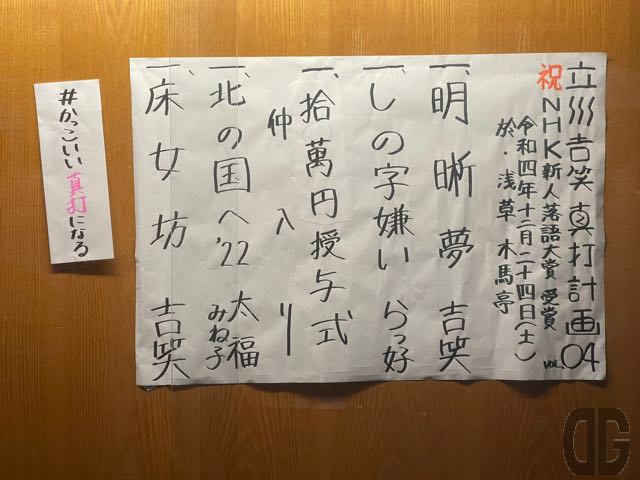 立川吉笑真打計画 VOL.04
祝 NHK新人落語大賞 受賞
令和四年十二月二十四日(土)
於・浅草木馬亭
一、明晰夢 吉笑
一、しの字嫌い らっ好
一、拾萬円授与式
仲入り
一、北の国へ'22 太福 みね子
一、床女坊 吉笑
#かっこいい真打になる
DG